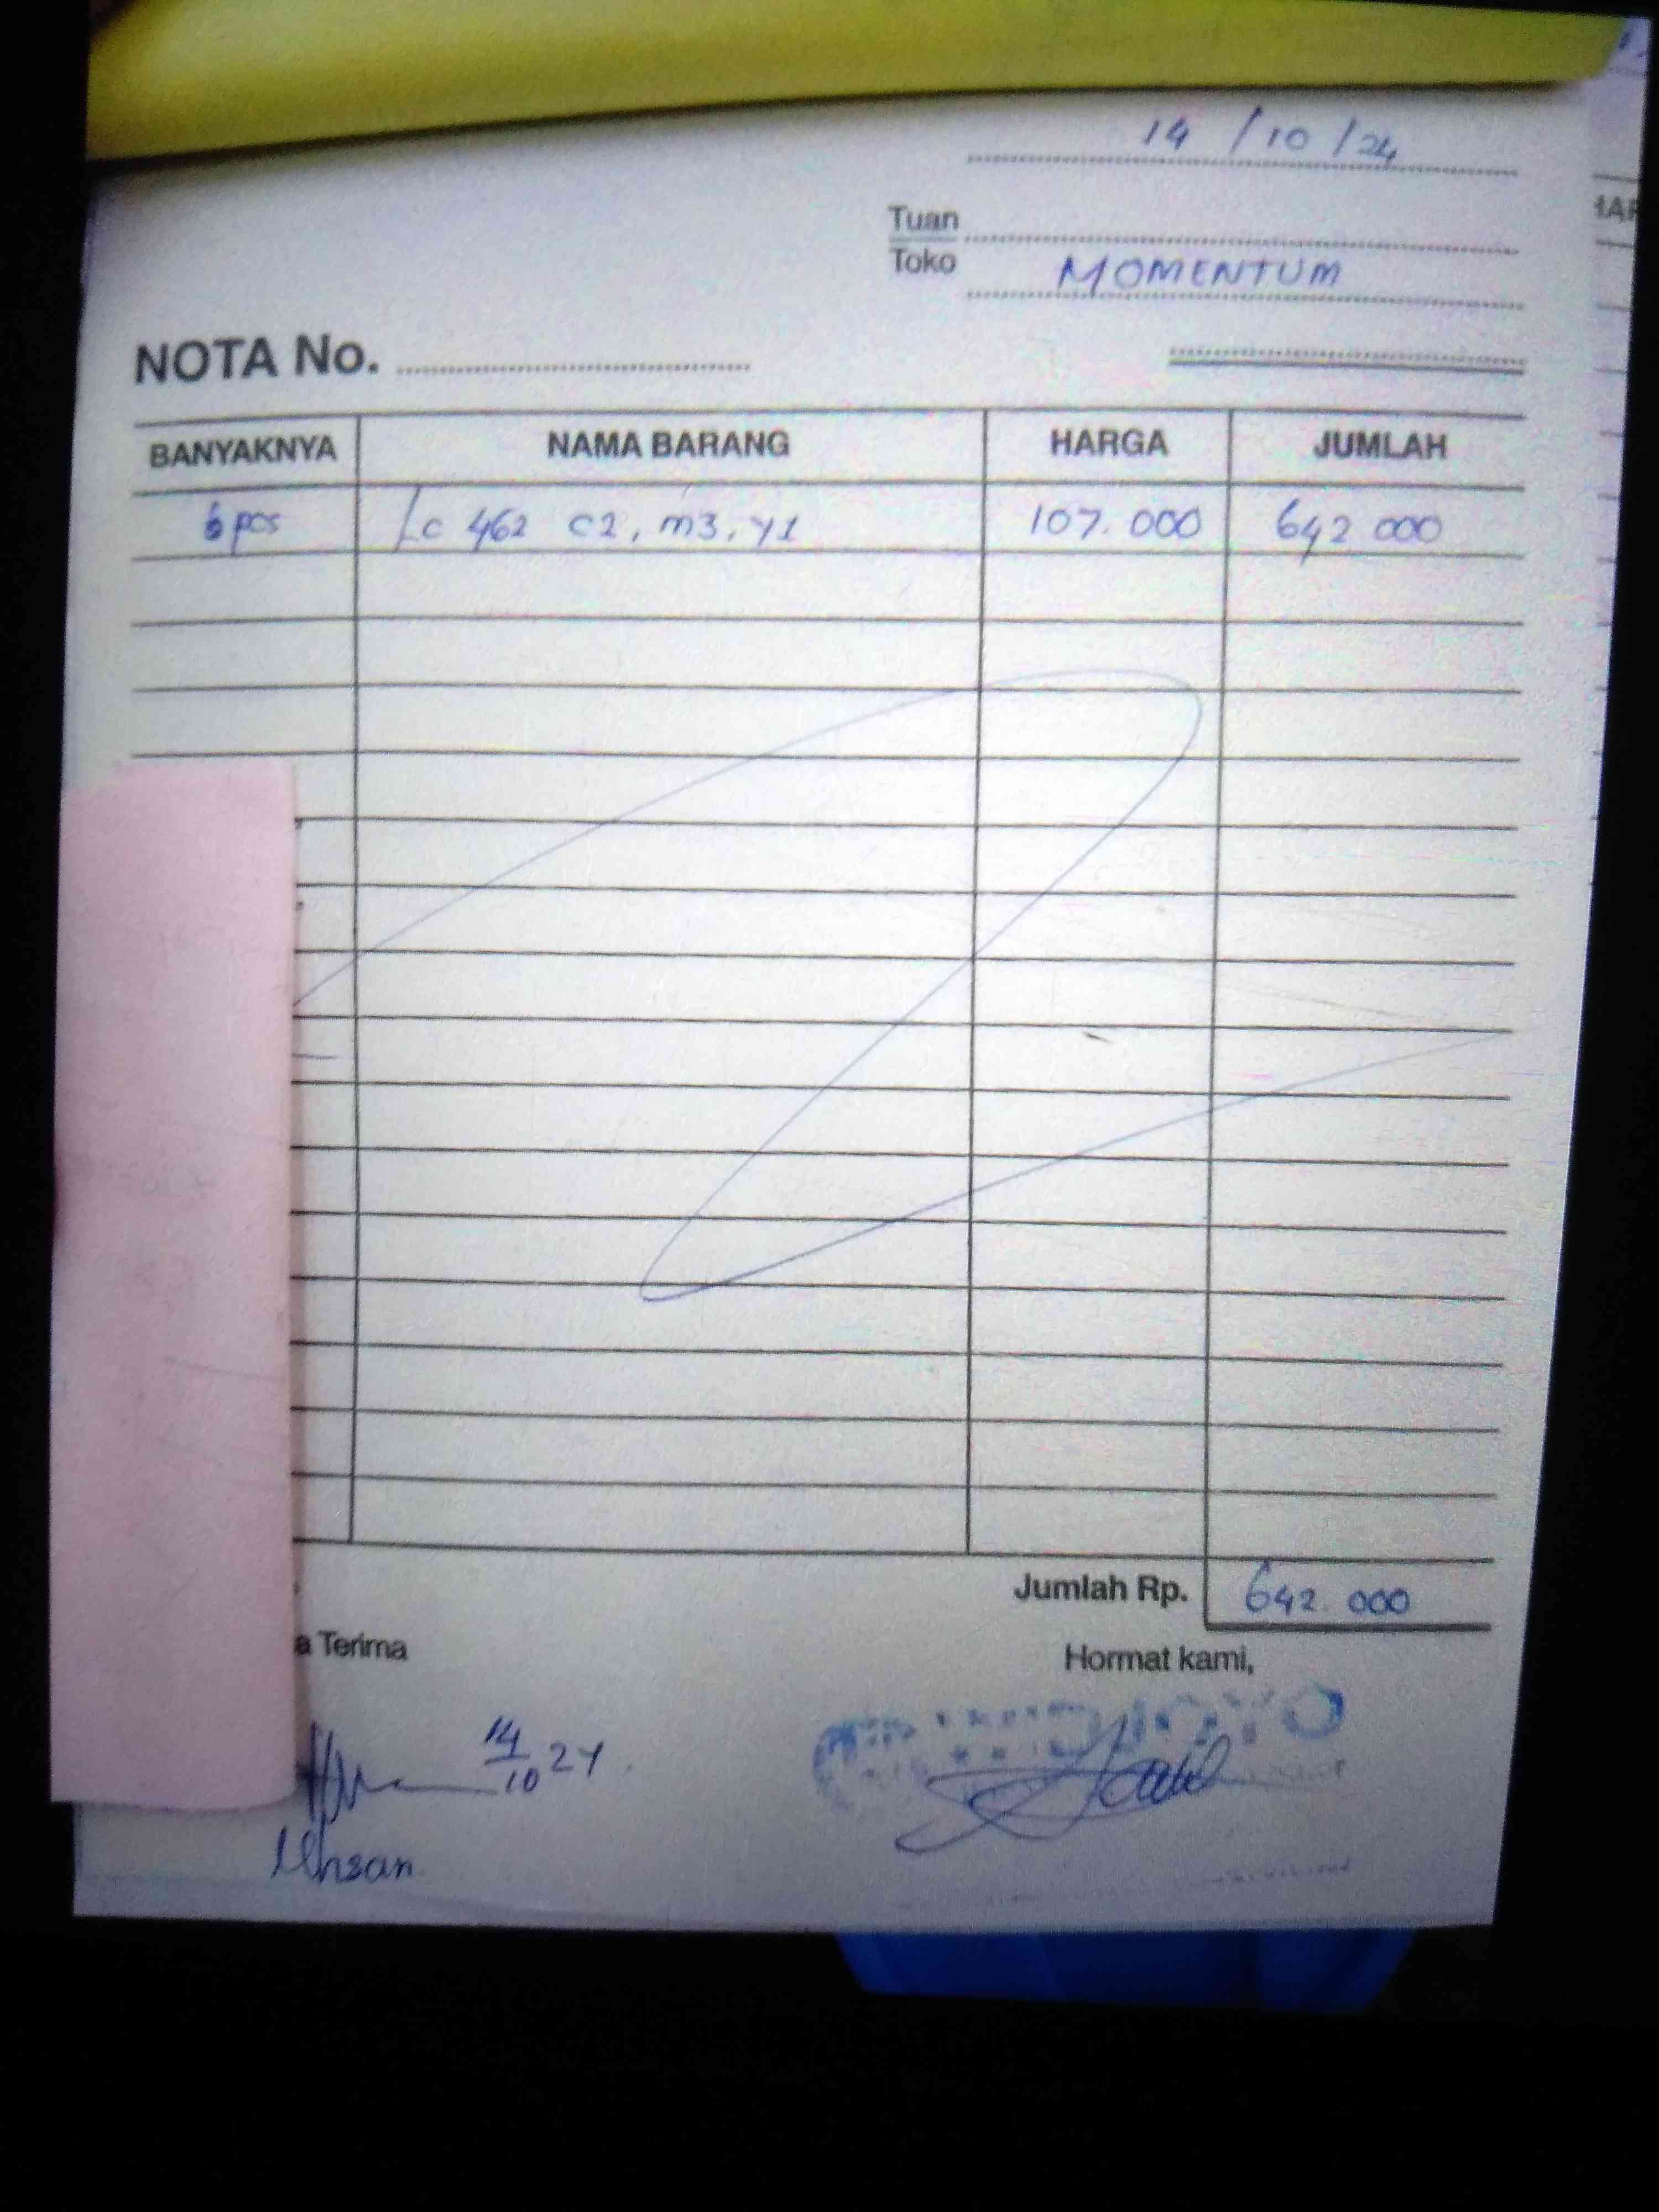 14 / 10 / 24
Tuan
Toko MOMENTUM
HAR
NOTA No.
BANYAKNYA NAMA BARANG HARGA JUMLAH
6 pcs Lc 462 C2, m3, y1 107.000 642 000
Jumlah Rp. 642.000
a Terima Hormat kami,
14/10 24
Ihsan